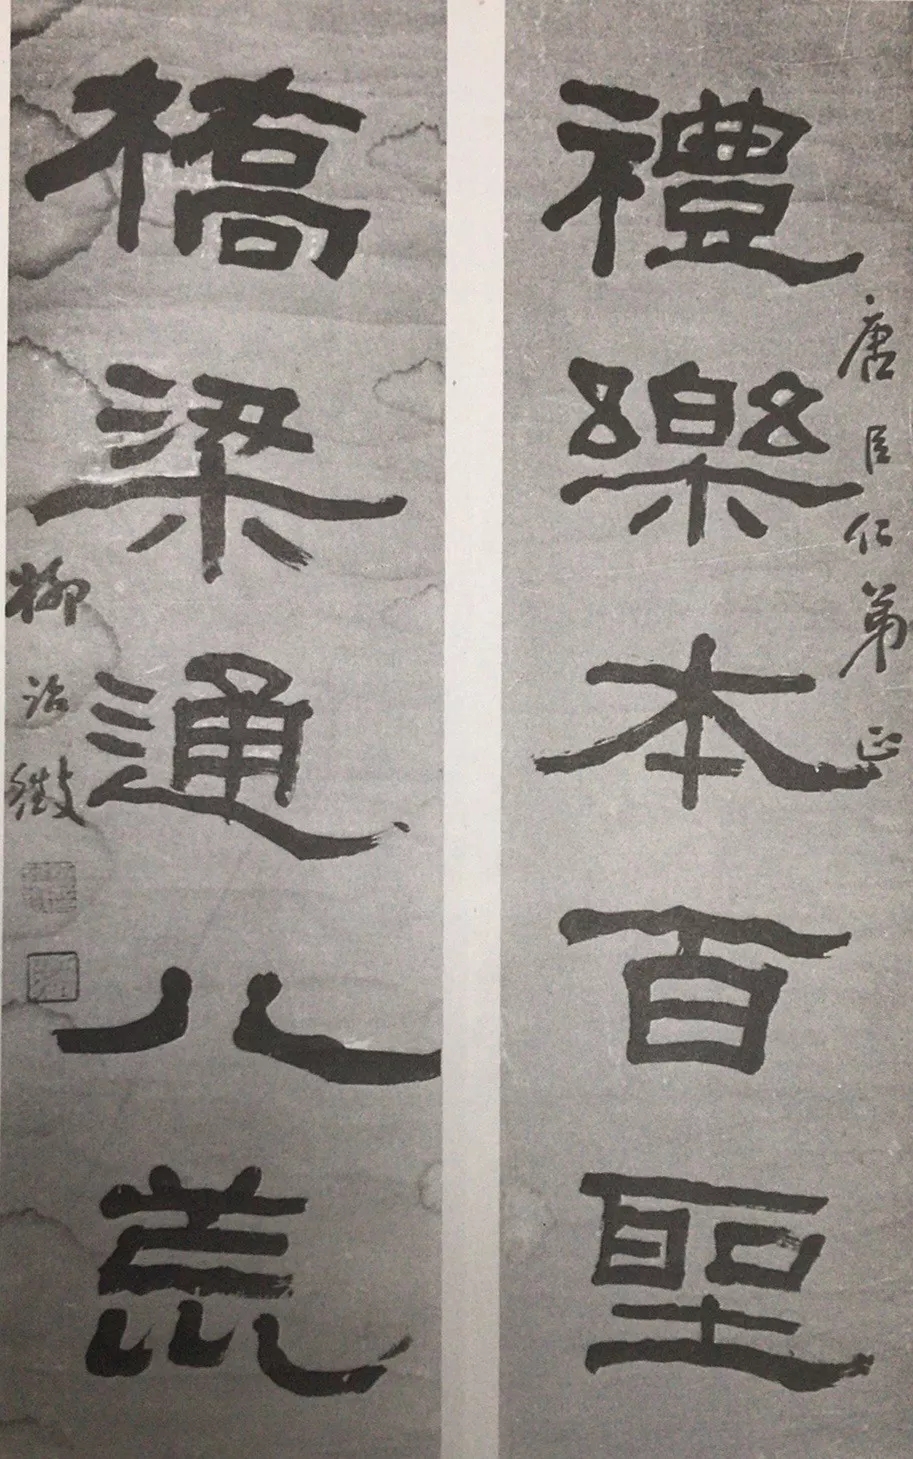 唐臣仁弟正
禮樂本百聖
橋梁通八荒
柳詒徵